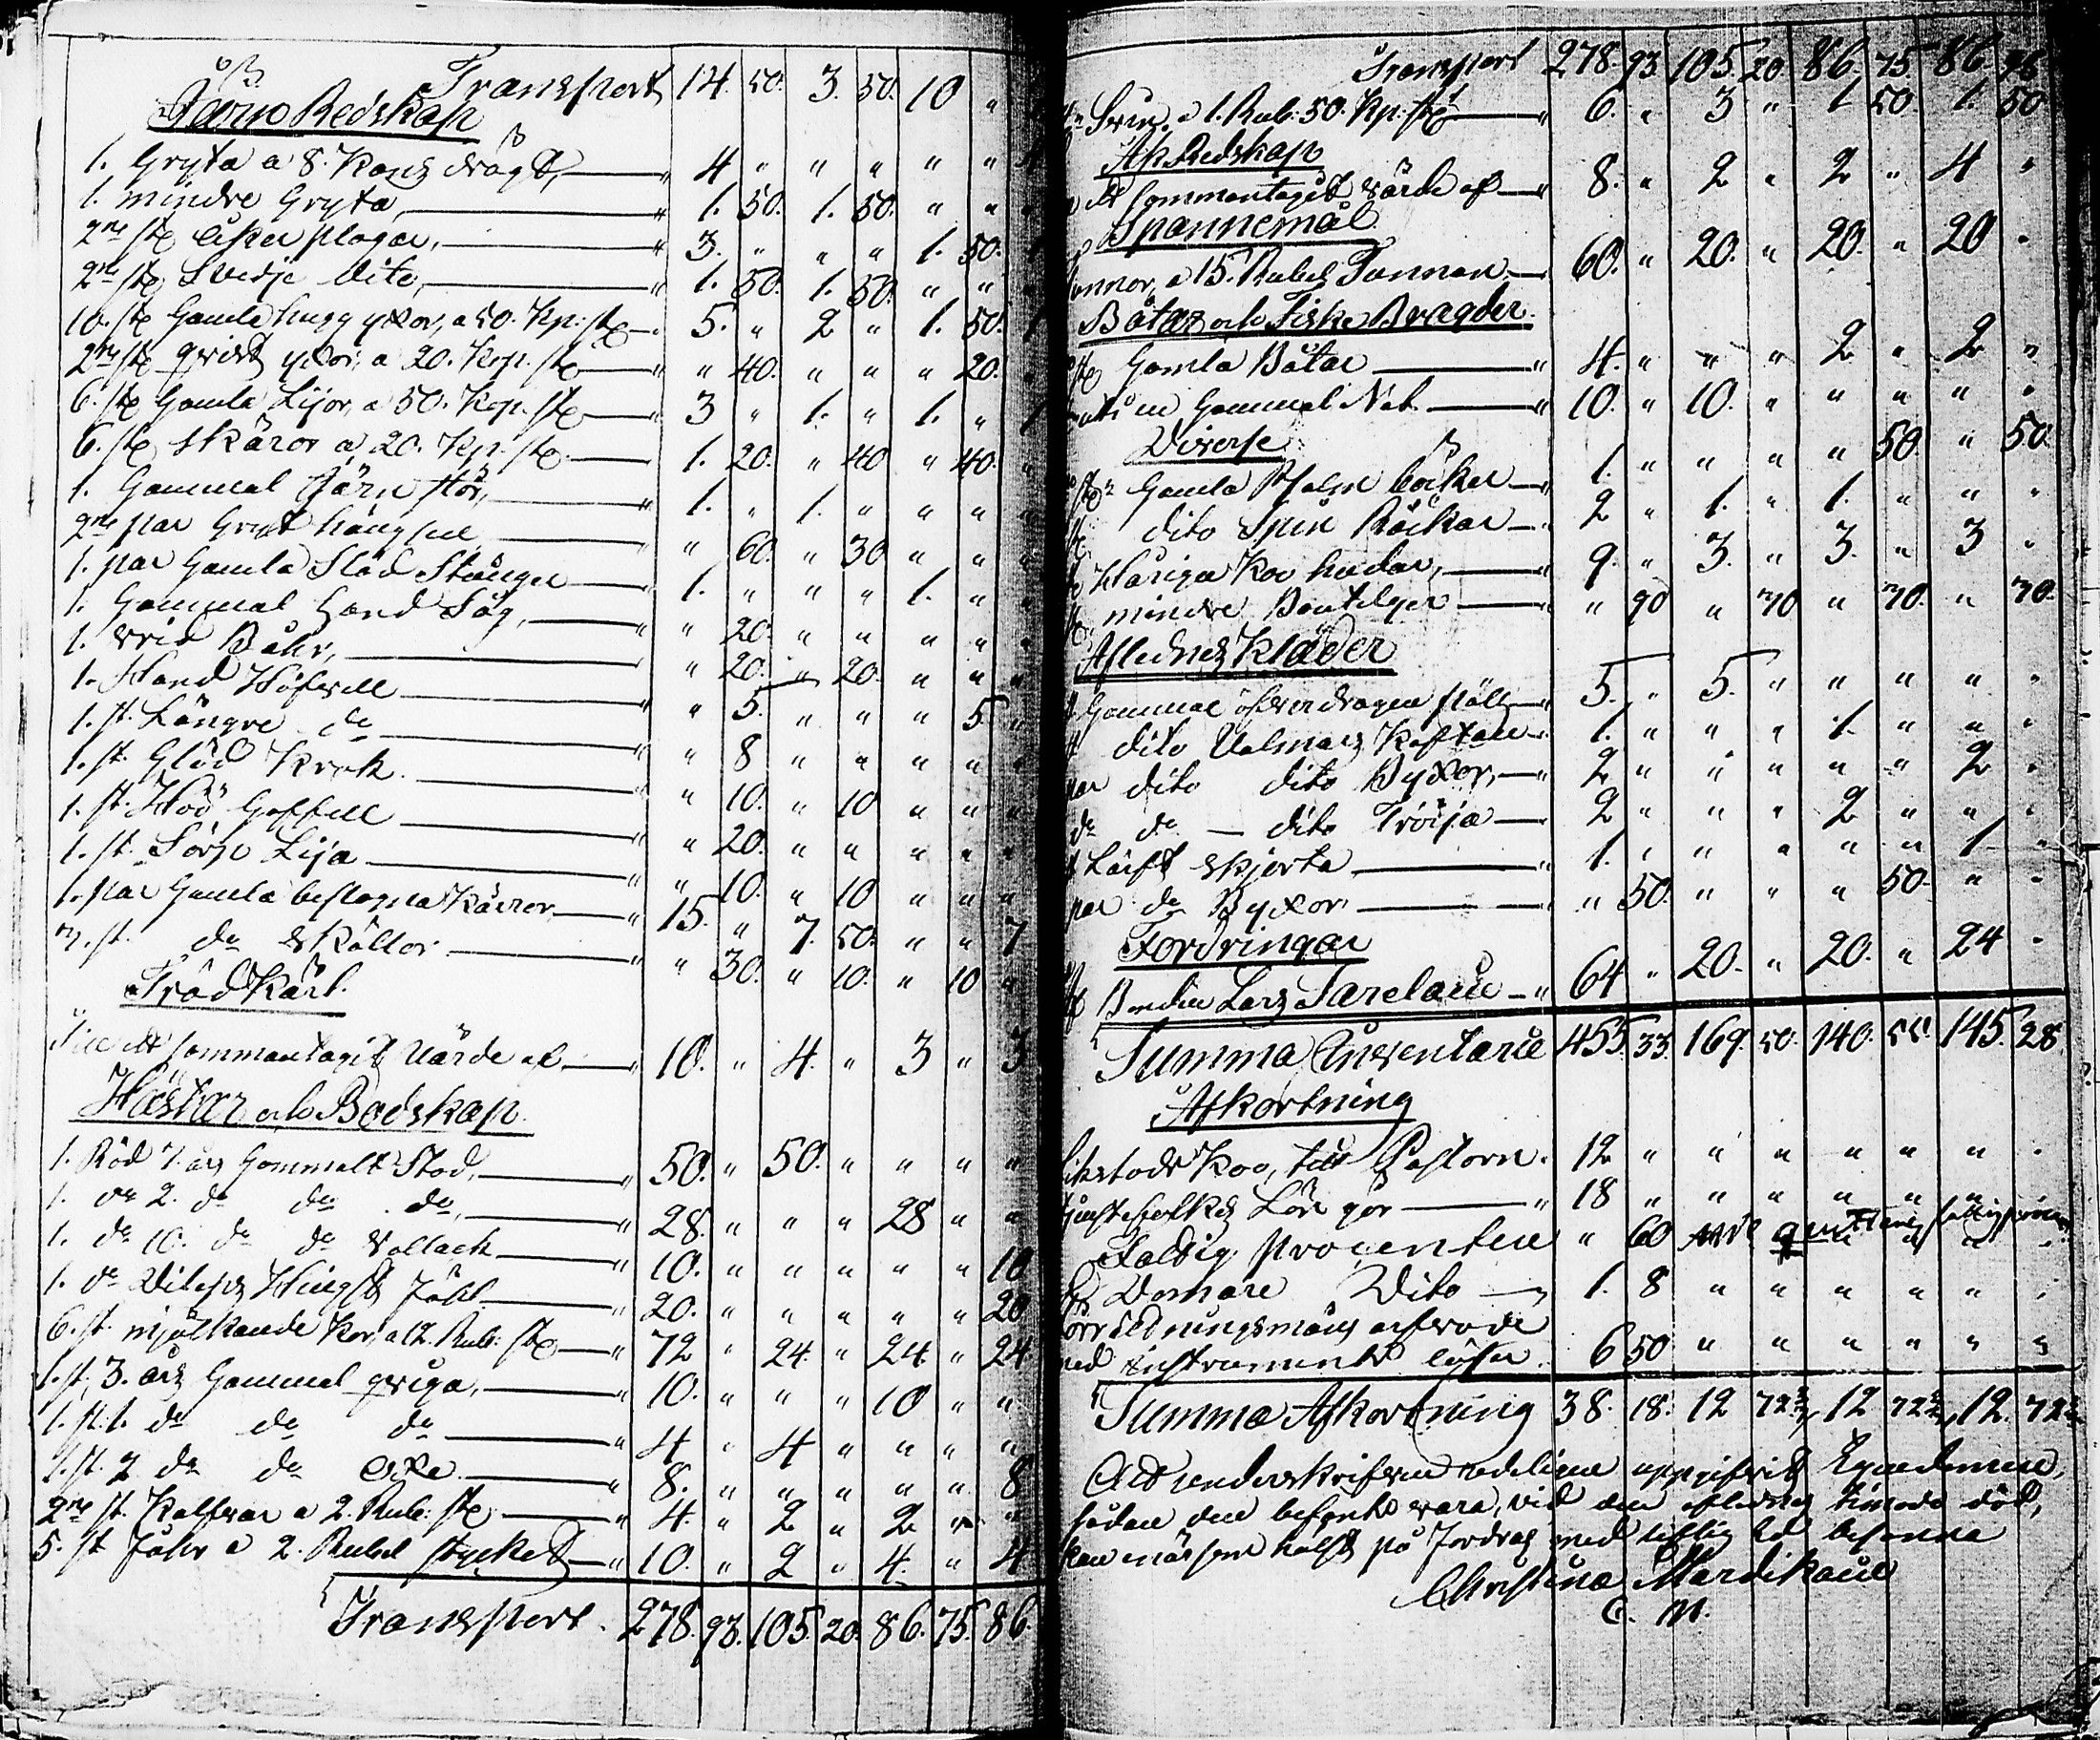 Transport 14. 50. 3. 50. 10 "
Järn Redskap
1. Gryta a 8. Kans drägt, " 4 " " " " "
1. mindre Gryta, " 1. 50. 1. 50. " "
2ne st. åker plogar, " 3. " " " 1. 50.
2ne st. Svedje dito, " 1. 50. 1. 50. " "
10. st. Gamla hugg yxor, a 50. Kp: st. 5. " 2 " 1. 50.
2ne st. qvist yxor, a 20. Kop. st. " " 40. " " " 20.
6. st. Gamla Lijor, a 50. Kop. st. " 3 " 1. " 1. "
6. st. skäror a 20. Kp. st. 1. 20. " 40 " 40.
1. Gammal Järn stör, 1. " 1. " " "
2ne par Gryt hängsel " 60. " 30 " "
1. par Gamla Släd Stänger 1. " " " 1. "
1. Gammal Hand Såg, " " 20. " " " "
1. vrid Båhr, " 20. " 20. " "
1. Hand Höfvell " 5. " " " 5
1. st. Längre do " 8 " " " "
1. st. Glöd Krok. " 10. " 10 " "
1. st. Höö Gaffell " 20. " " " "
1. st. Sörp Lija " 10. " 10 " "
1. par Gamla beslagna Kärror " 15. " 7. 50. " " 7
3. st. do skällor " 30. " 10. " 10
Träd Kärl.
Till ett sammantagit Värde af " 10. " 4. " 3 " 3
Hästar och Bodskap.
1. Röd 7. års Gammalt Stod, " 50. " 50. " " "
1. do 2. do do do, " 28. " " " 28 "
1. do 10. do do Vallack 10. " " " " " 10
1. do Hingst Fåhl 20. " " " " " 20
6. st. mjölkande Kor, a 12. Rub: st. " 72 " 24. " 24. " 24
1. st. 3. års Gammal qviga, " 10. " " " 10 "
1. st. 1. do do do " 4 " 4 " " "
1. st. 2 do do Oxe. " 8. " " " " " 8
2ne st. Kalfvar a 2. Rub: st. " 4. " 2 " 2 "
5. st Fåhr a 2. Rubel stycket " 10. " 2 " 4. " 4
Transport. 278. 93. 105. 20. 86. 75. 86.
Transport 278. 93 105. 20 86. 75 86.
Svin, a 1. Rub: 50. Kp: st. " 6. " 3 " 1. 50. 1. 50
Åk Redskap
ett sammantagit värde af " 8. " 2 " 2 " 4 "
Spannemål
a 15. Rubel Tunnan 60. " 20. " 20. " 20 "
Båtar och Fiske Bragder.
st. Gamla Båtar " 4. " " " 2 " 2 "
Gammal Not " 10. " 10. " " " " "
Diverse
Gamla Psalm böcker " 1. " " " " 50. " 50.
dito Spin Råckar 2 " 1. " 1. " " "
Håriga Koo hudar, " 9. " 3. " 3. " 3 "
mindre " 90 " 70 " 70. " 70.
Aflednes Kläder
Gammal öfverdragen päls " 5. " 5. " " " " "
dito Valmars Kaftan 1. " " " 1. " " "
par dito dito Byxor, " 2 " " " " " 2 "
do do dito Tröija 2 " " " 2 " " "
Lärft skjorta " 1. " " " " " 1 "
par do Byxor " 50. " " " 50. " "
Fordringar
Bonden Lars " 64 " 20. " 20. " 24 "
Summa Inventarie 455. 33. 169. 50. 140. 55. 145. 28
Afkortning
Koo, till Pastorn. 12 " " " " " " "
Lön gör " 18 " " " " " " "
Fattig procenten " 60
Domare Dito 1. 8 " " " " " "
arfvode
med instruments lösen. 6 50 " " " " " "
Summa Afkortning 38. 18. 12 72 2/3, 12 72 2/3, 12. 72
Att underskrifven redeligen uppgifvit Egendomen,
sådan den befants vara, vid den aflednes timada död,
kan när som hälst på fordras med liflig Ed besanna
Christina
C. M.